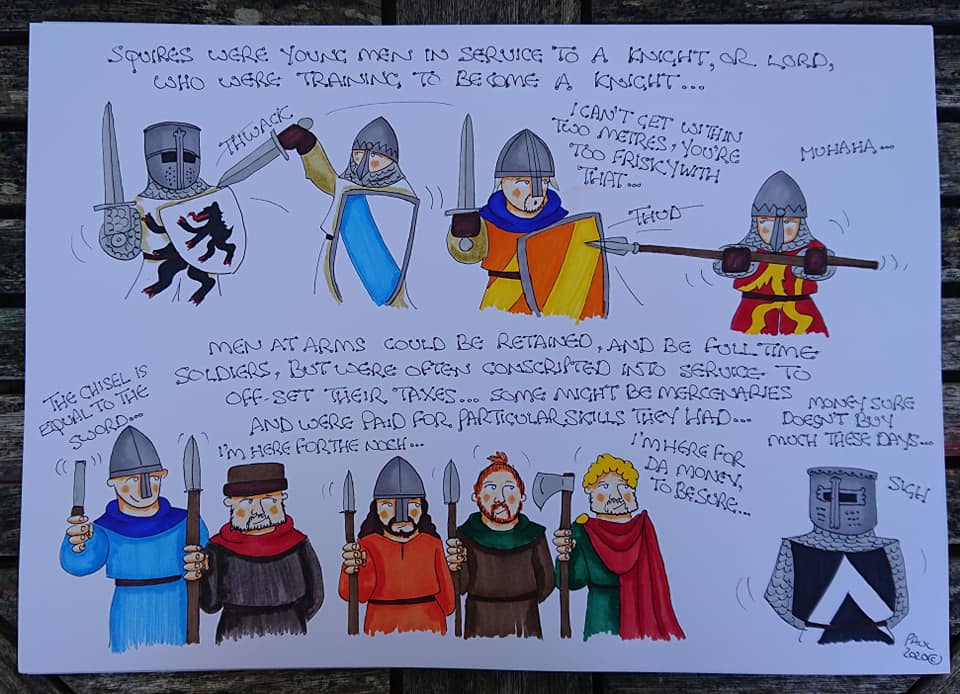 SQUIRES WERE YOUNG MEN IN SERVICE TO A KNIGHT, OR LORD,
WHO WERE TRAINING TO BECOME A KNIGHT...
THWACK
I CAN'T GET WITHIN
TWO METRES, YOU'RE
TOO FRISKY WITH
THAT...
THUD
MUHAHA...
MEN AT ARMS COULD BE RETAINED, AND BE FULL TIME
SOLDIERS, BUT WERE OFTEN CONSCRIPTED INTO SERVICE TO
OFF-SET THEIR TAXES... SOME MIGHT BE MERCENARIES
AND WERE PAID FOR PARTICULAR SKILLS THEY HAD...
THE CHISEL IS
EQUAL TO THE
SWORD...
I'M HERE FOR THE NOSH...
I'M HERE FOR
DA MONEY,
TO BE SURE...
MONEY SURE
DOESN'T BUY
MUCH THESE DAYS...
SIGH
PAUL
2020©